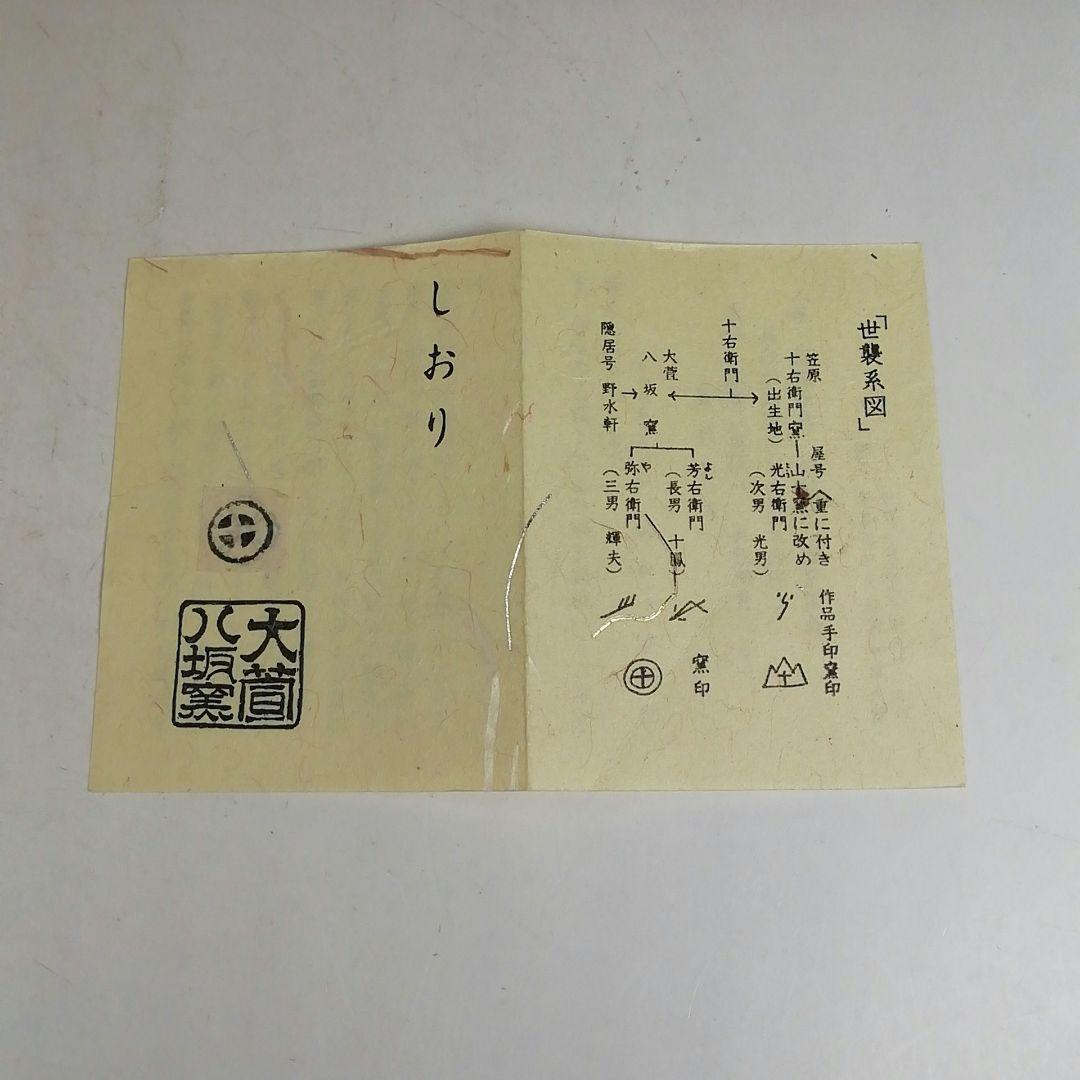 「世襲系図」
笠原
十右衛門窯
(出生地)
屋号
重に付き
山十窯に改め
光右衛門
(次男 光男)
十右衛門
大萱
八坂窯
芳右衛門
よし
(長男 十鳳)
弥右衛門
や
(三男 輝夫)
隠居号 野水軒
作品手印窯印
窯印
しおり
大萱
八坂窯